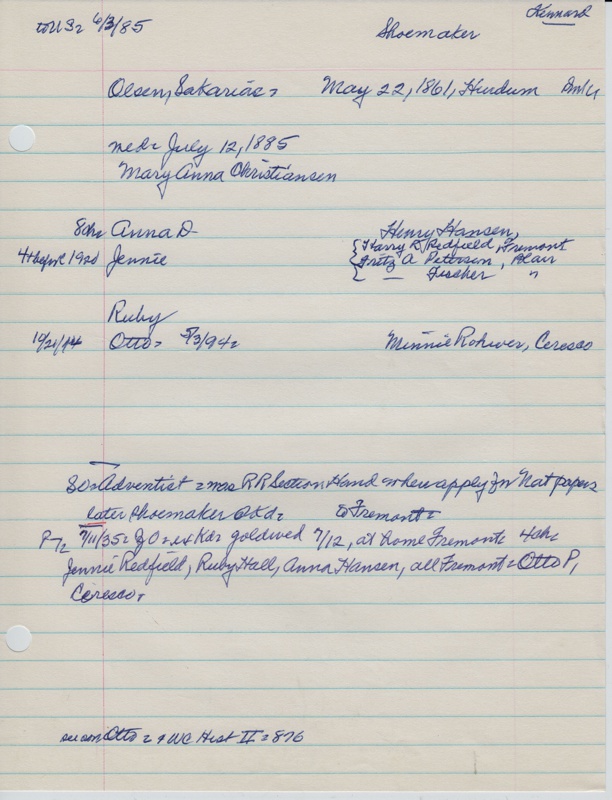 Kennard
to US= 6/3/85 Shoemaker
Olsen, Sakarias= May 22, 1861, Hurdum Dmk
med= July 12, 1885
Mary Anna Christiansen
8ch= Anna D Henry Hansen,
{Harry R, Redfield, Fremont
4th 1920 Jennie {Fritz A Petersen, Blair
{ — Fischer "
Ruby
10/21/14 Otto= 5/3/94= Minnie Rohwer, Ceresco
SO=Adventist = was RR Section Hand when apply for Nat papers
later shoemaker to Fremont=
PT= 7/11/35= goldwed 7/12, at home Fremont= 4ch=
Jennie Redfield, Ruby Hall, Anna Hansen, all Fremont= Otto P,
Ceresco.
see on Otto= WC Hist II= 876